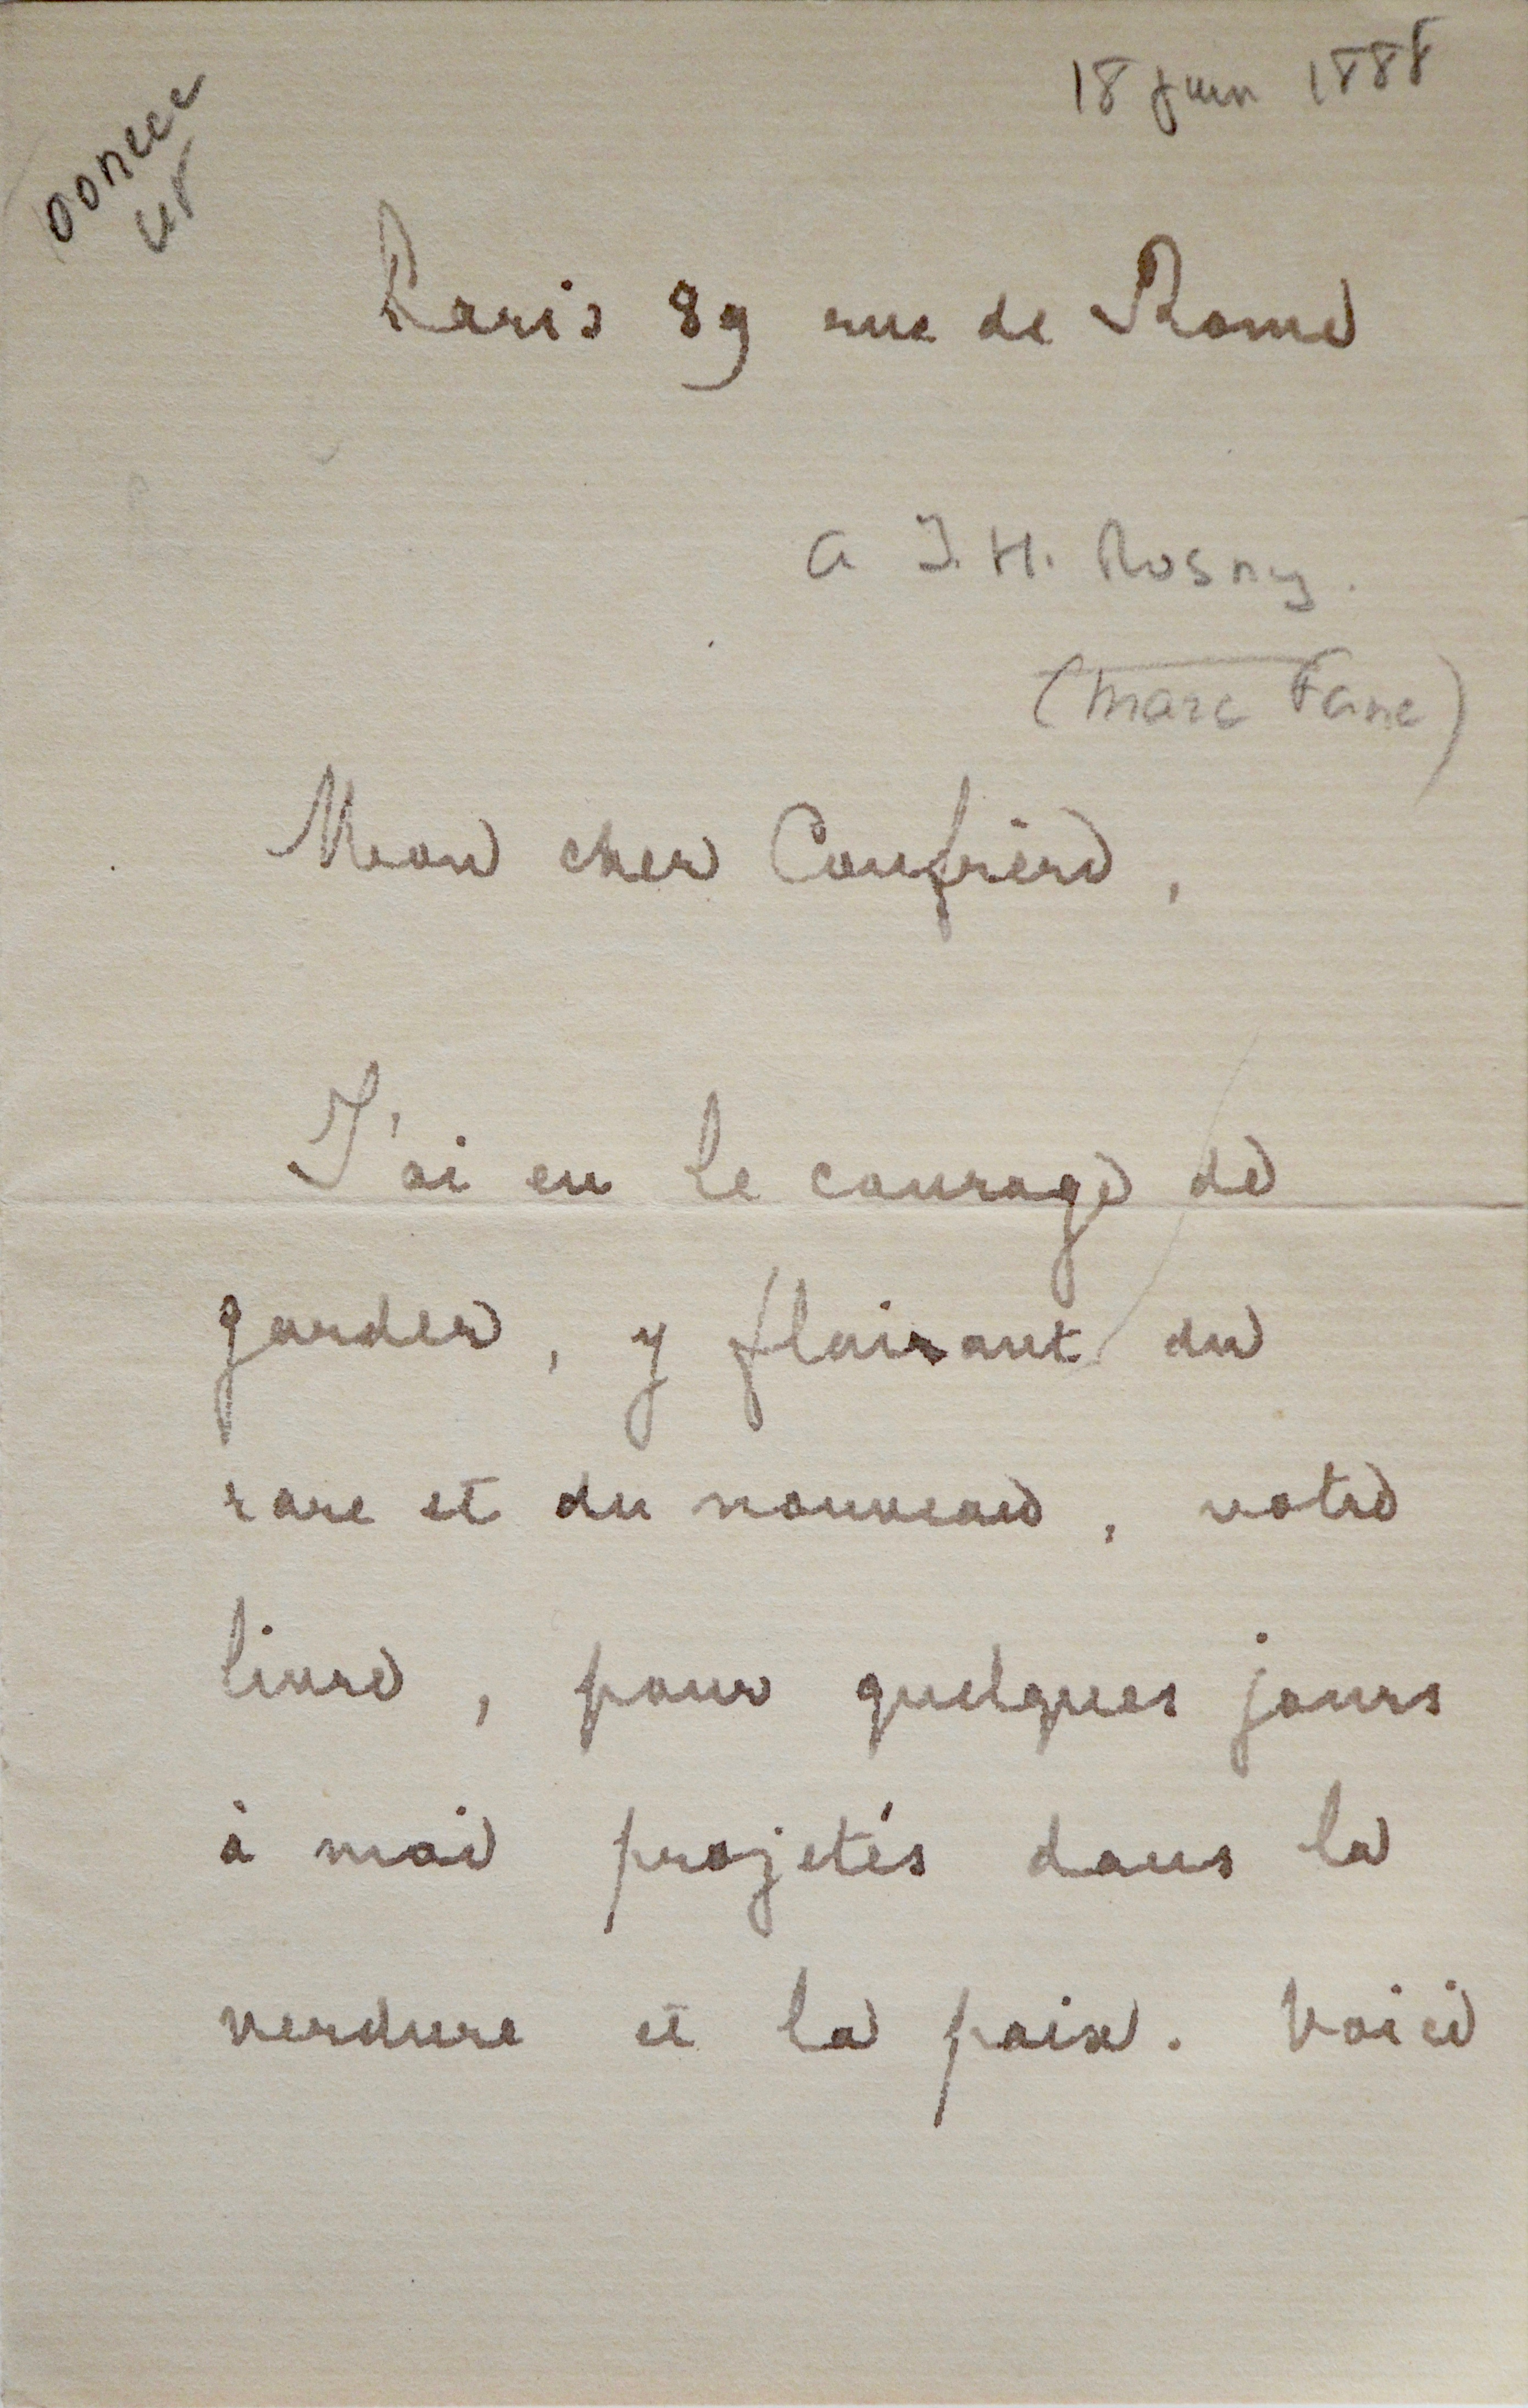 18 juin 1888
Paris 89 rue de Rome
a J. H. Rosny.
(Marc Fane)
Mon cher Confrère,
J'ai eu le courage de
garder, y flairant du
rare et du nouveau, votre
livre, pour quelques jours
à moi projetés dans la
verdure et la paix. Voici